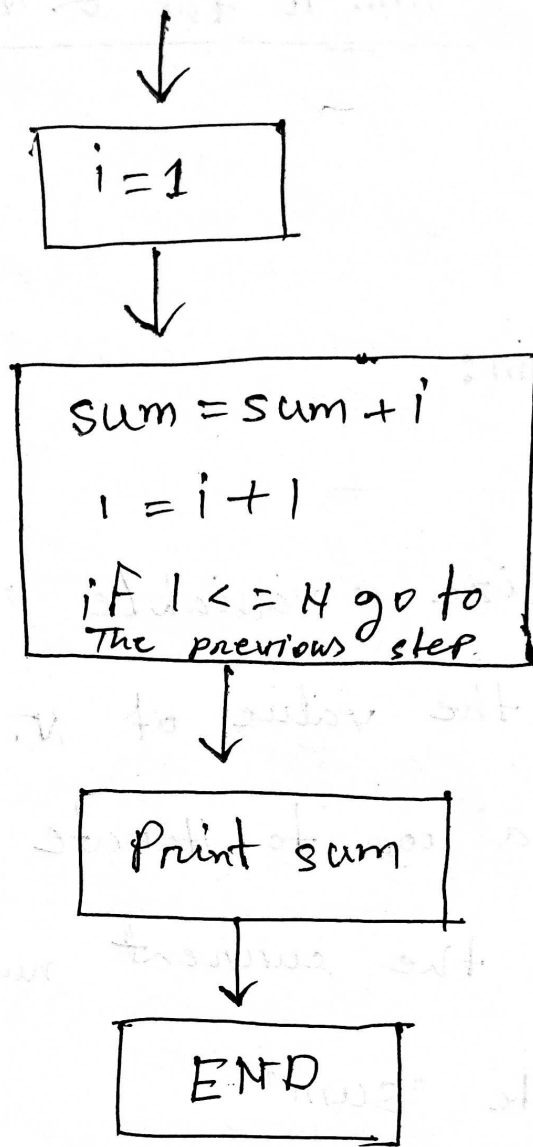 i = 1
sum = sum + i
i = i + 1
if i <= N go to
The previous step.
Print sum
END